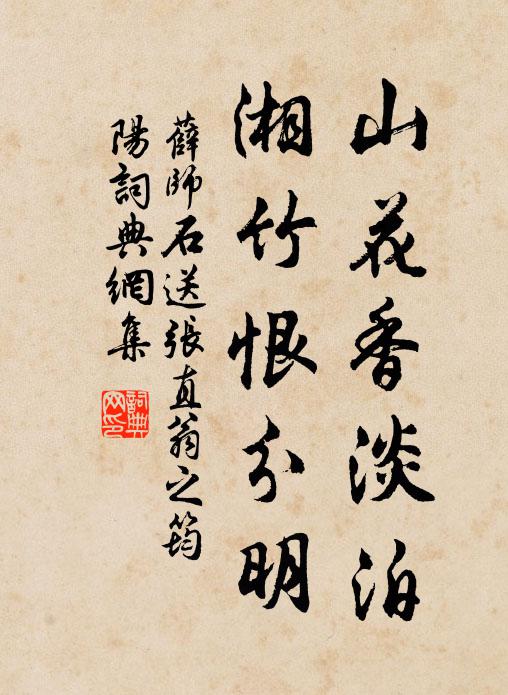 山花香淡泊
湘竹恨分明
薛師石送張直翁之筠
陽詞典網集
詞典
网印